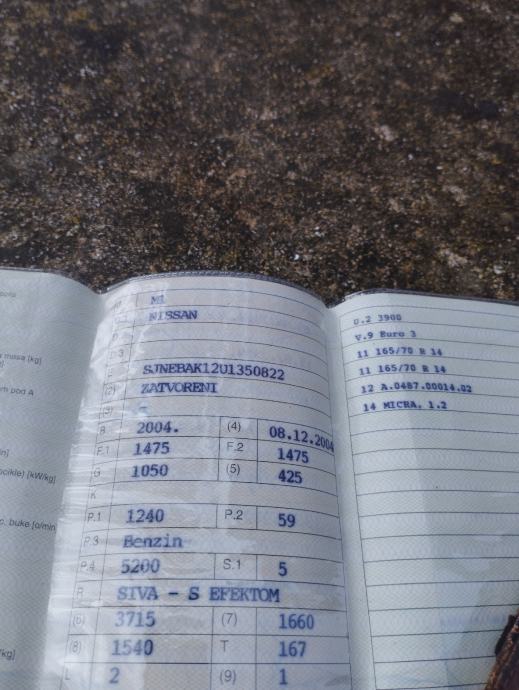 masa [kg]
om pod A
[kW/kg]
c. buke [o/min
[kg]
M1
NISSAN
D.3
E SJNEBAK12U1350822
(2) ZATVORENI
(3) -
B 2004. (4) 08.12.2004
F.1 1475 F.2 1475
G 1050 (5) 425
K
P.1 1240 P.2 59
P.3 Benzin
P.4 5200 S.1 5
R SIVA - S EFEKTOM
(6) 3715 (7) 1660
(8) 1540 T 167
L 2 (9) 1
U.2 3900
V.9 Euro 3
11 165/70 R 14
11 165/70 R 14
12 A.0487.00014.02
14 MICRA, 1.2